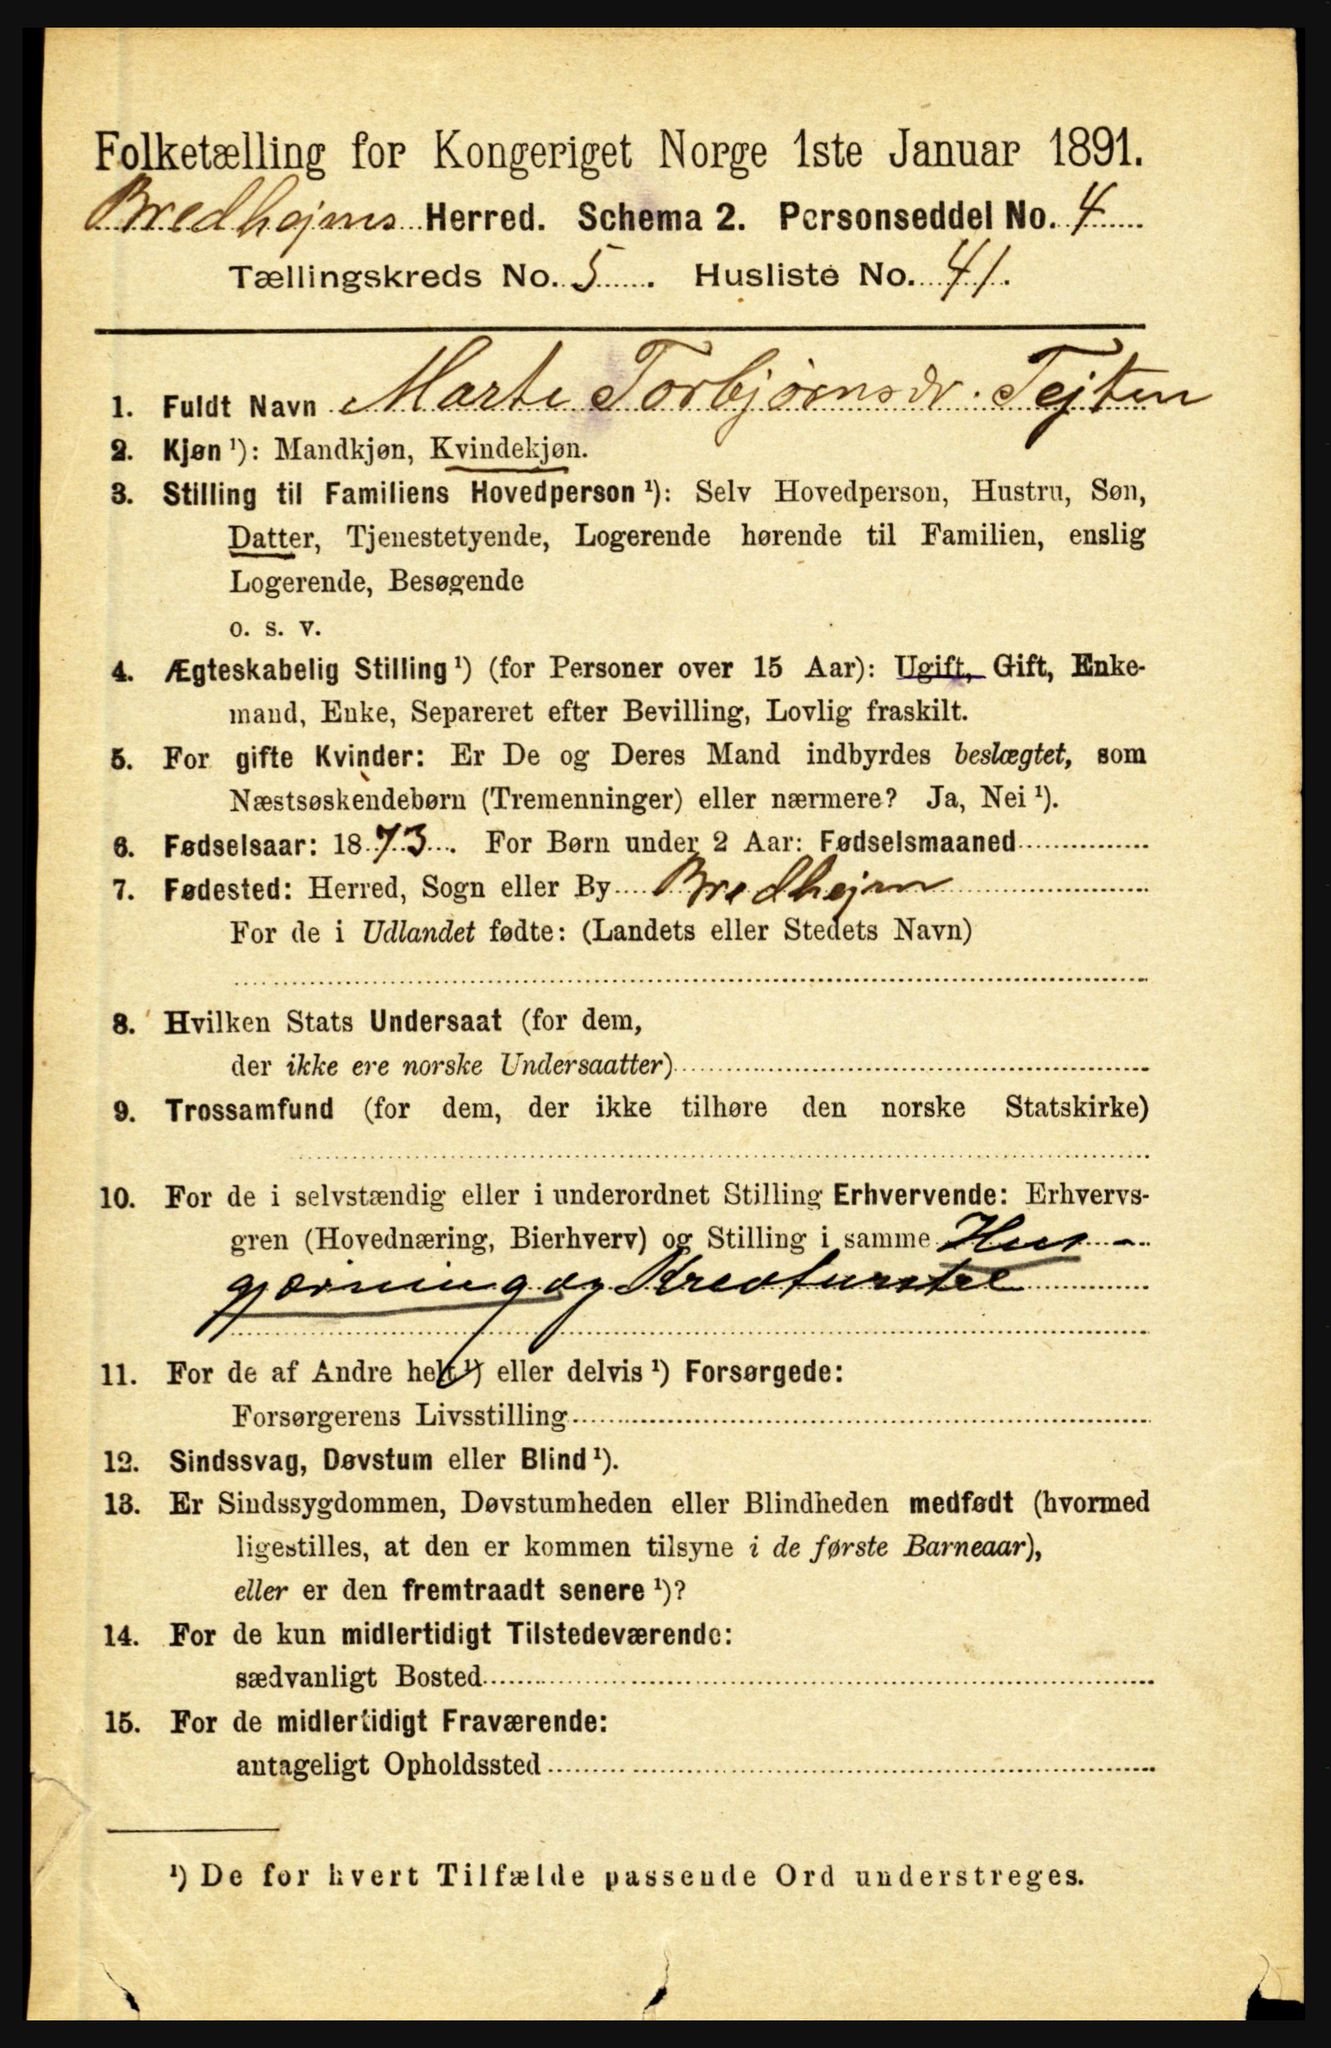 Folketælling for Kongeriget Norge 1ste Januar 1891.
Bredhejms Herred. Schema 2. Personseddel No. 4
Tællingskreds No. 5. Husliste No. 41.
1. Fuldt Navn Marte Torbjörnsdr. Tejten
2. Kjøn ¹): Mandkjøn, Kvindekjøn.
3. Stilling til Familiens Hovedperson ¹): Selv Hovedperson, Hustru, Søn,
Datter, Tjenestetyende, Logerende hørende til Familien, enslig
Logerende, Besøgende
o. s. v.
4. Ægteskabelig Stilling ¹) (for Personer over 15 Aar): Ugift, Gift, Enke-
mand, Enke, Separeret efter Bevilling, Lovlig fraskilt.
5. For gifte Kvinder: Er De og Deres Mand indbyrdes beslægtet, som
Næstsøskendebørn (Tremenninger) eller nærmere? Ja, Nei ¹).
6. Fødselsaar: 1873. For Børn under 2 Aar: Fødselsmaaned
7. Fødested: Herred, Sogn eller By Bredhejm
For de i Udlandet fødte: (Landets eller Stedets Navn)
8. Hvilken Stats Undersaat (for dem,
der ikke ere norske Undersaatter)
9. Trossamfund (for dem, der ikke tilhøre den norske Statskirke)
10. For de i selvstændig eller i underordnet Stilling Erhvervende: Erhvervs-
gren (Hovednæring, Bierhverv) og Stilling i samme Hus-
gjærning og Kreaturstel
11. For de af Andre helt ¹) eller delvis ¹) Forsørgede:
Forsørgerens Livsstilling
12. Sindssvag, Døvstum eller Blind ¹).
13. Er Sindssygdommen, Døvstumheden eller Blindheden medfødt (hvormed
ligestilles, at den er kommen tilsyne i de første Barneaar),
eller er den fremtraadt senere ¹)?
14. For de kun midlertidigt Tilstedeværende:
sædvanligt Bosted
15. For de midlertidigt Fraværende:
antageligt Opholdssted
¹) De for hvert Tilfælde passende Ord understreges.